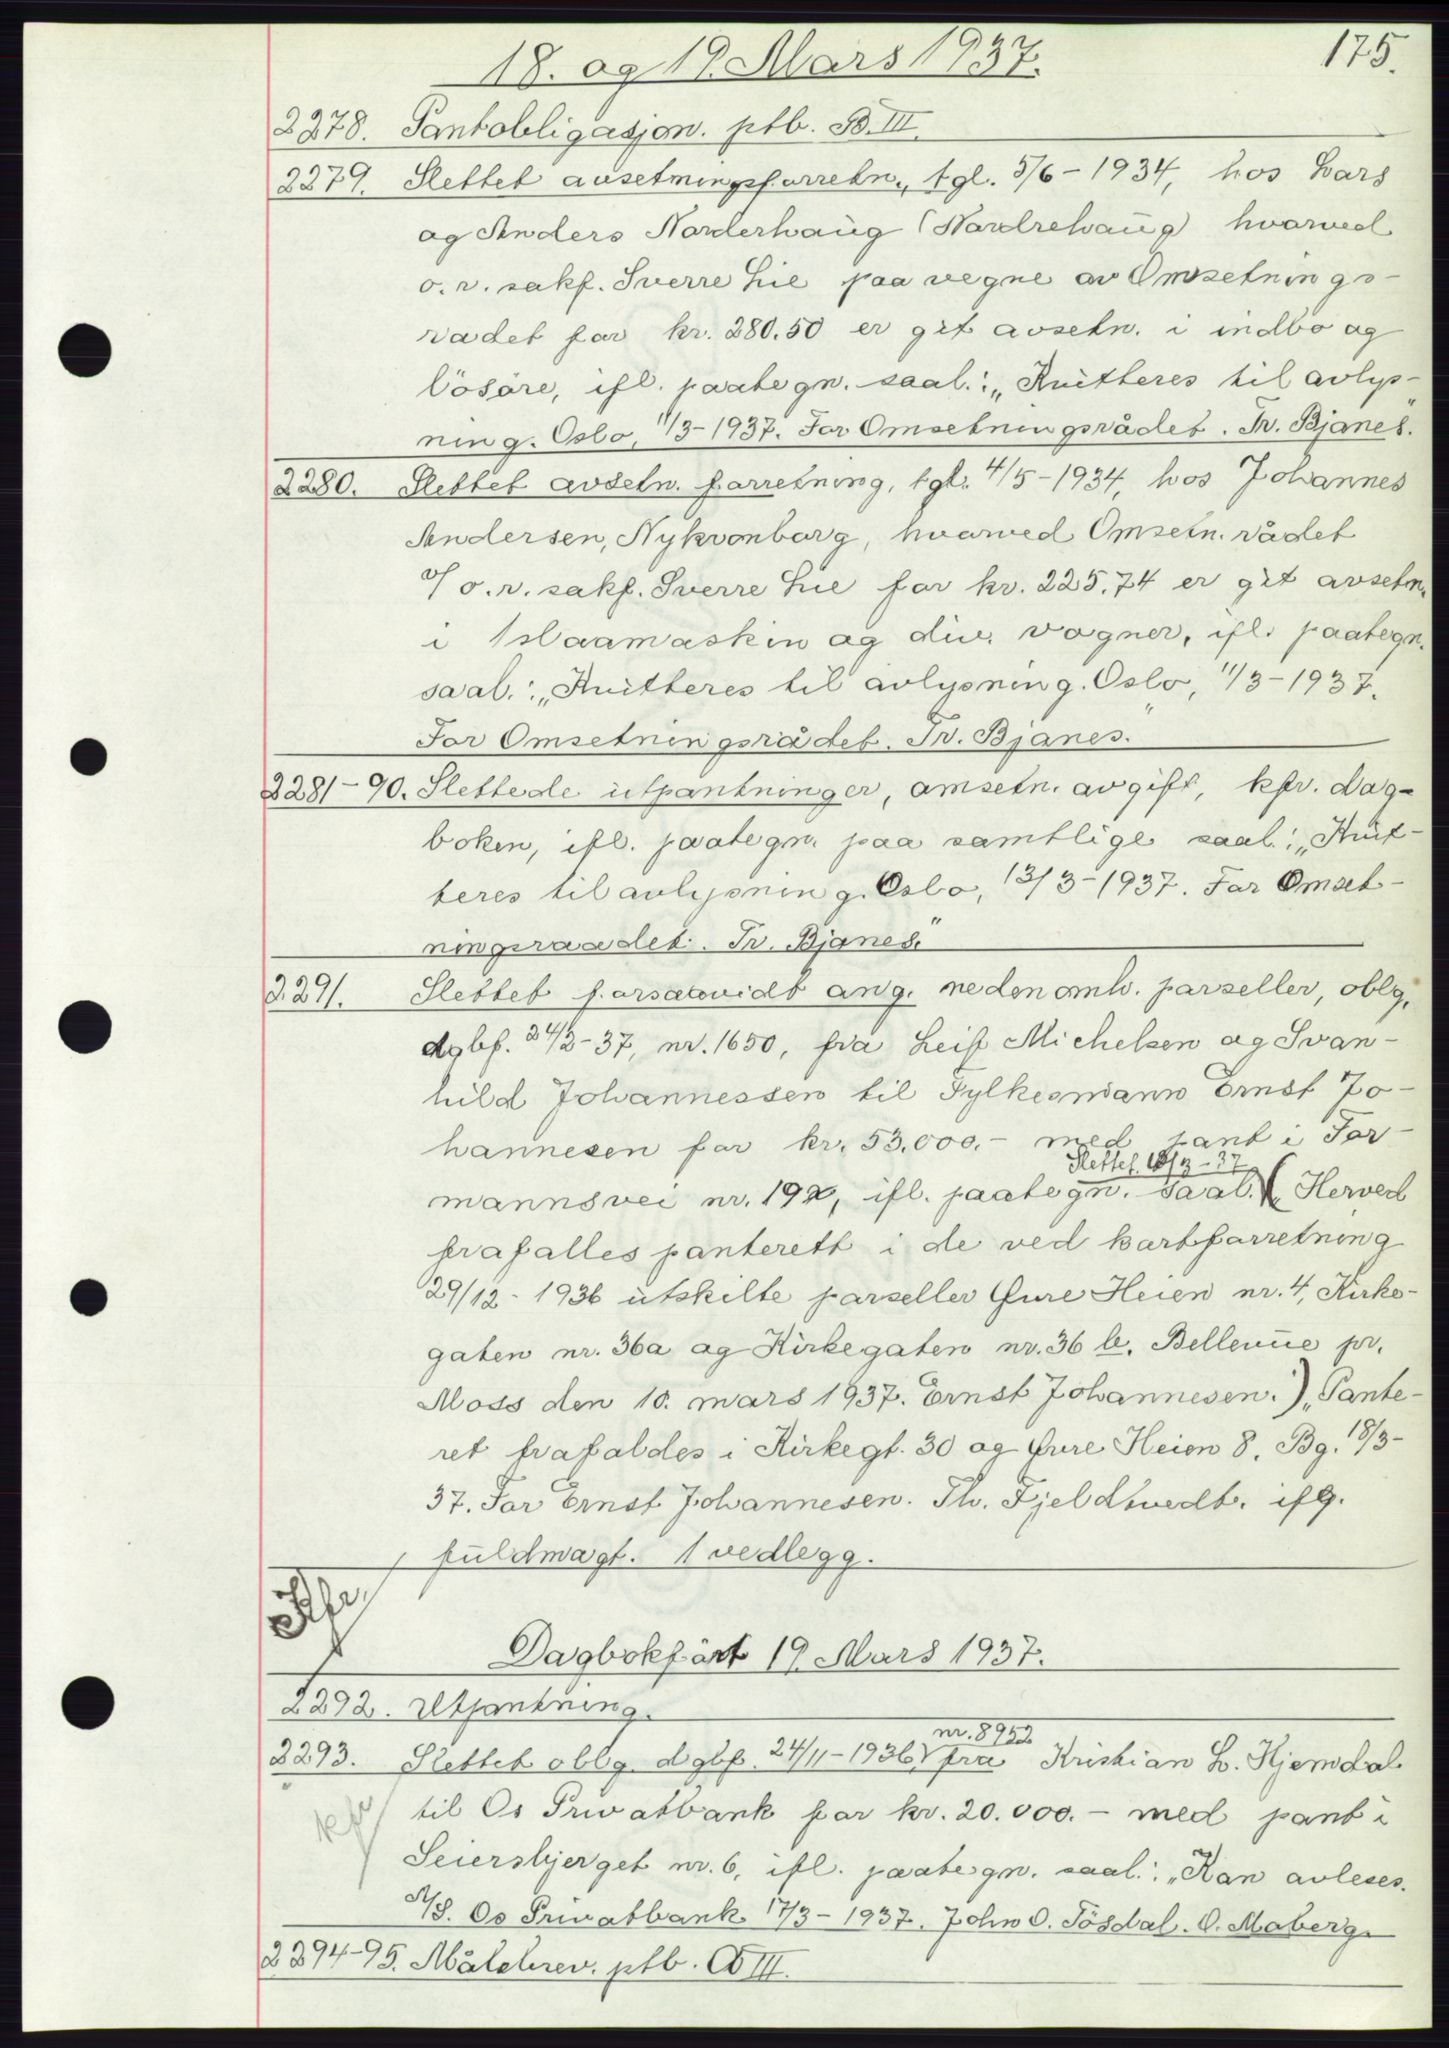 18. og 19. Mars 1937.
175.
2278. Pantobligasjon. ptb. B. III.
2279. Slettet avsetningsforretn., tgl. 5/6 - 1934, hos Lars
og Anders Norderhaug (Nordrehaug) hvorved
o. r. sakf. Sverre Lie paa vegne av Omsetnings-
radet for kr. 280.50 er git avsetn. i indbo og
lösöre, ifl. paategn. saal.: „Kvitteres til avlys-
ning. Oslo, 11/3 - 1937. For Omsetningsrådet. Tr. Bjanes."
2280. Slettet avsetn. forretning, tgl. 4/5 - 1934, hos Johannes
Andersen, Nykronborg, hvorved Omsetn. rådet
v/ o. r. sakf. Sverre Lie for kr. 225.74 er git avsetn.
i 1 slaamaskin og div. vogner, ifl. paategn.
saal.: „Kvitteres til avlysning. Oslo, 11/3 - 1937.
For Omsetningsrådet. Tr. Bjanes."
2281 - 90. Slettede utpantninger, omsetn. avgift, kfr. dag-
boken, ifl. paategn. paa samtlige saal.: „Kvit-
teres til avlysning. Oslo, 13/3 - 1937. For Omset-
ningsraadet. Tr. Bjanes."
2291. Slettet forsaavidt ang. nedenomh. parseller, oblg,
dgbf. 24/2 - 37, nr. 1650, fra Leif Michelsen og Svan-
hild Johannessen til Fylkesmann Ernst Jo-
hannesen for kr. 53.000.- med pant i For-
Slettet. 18/3 - 37
mannsvei nr. 19, ifl. paategn. saal. ( „Herved
frafalles panterett i de ved kartforretning
29/12 - 1936 utskilte parseller Øvre Heien nr. 4, Kirke-
gaten nr. 36a og Kirkegaten nr. 36 b. Bellevue pr.
Moss den 10. mars 1937. Ernst Johannesen. ) „Pante-
ret frafaldes i Kirkegt. 30 og Øvre Heien 8. Bg. 18/3 -
37. For Ernst Johannesen. Th. Fjeldtvedt. iflg.
fuldmagt. 1 vedlegg.
Kfr.
Dagbokført 19. Mars 1937.
2292. Utpantning.
nr. 8952
2293. Slettet oblg. dgbf. 24/11 - 1936 fra Kristian L. Hjemdal
kfr
til Os Privatbank for kr. 20.000.- med pant i
Seiersbjerget nr. 6, ifl. paategn. saal.: „Kan avleses.
A/S. Os Privatbank 17/3 - 1937. John O. Tösdal. O. Moberg.
2294 - 95. Målebrev. ptb. B III.